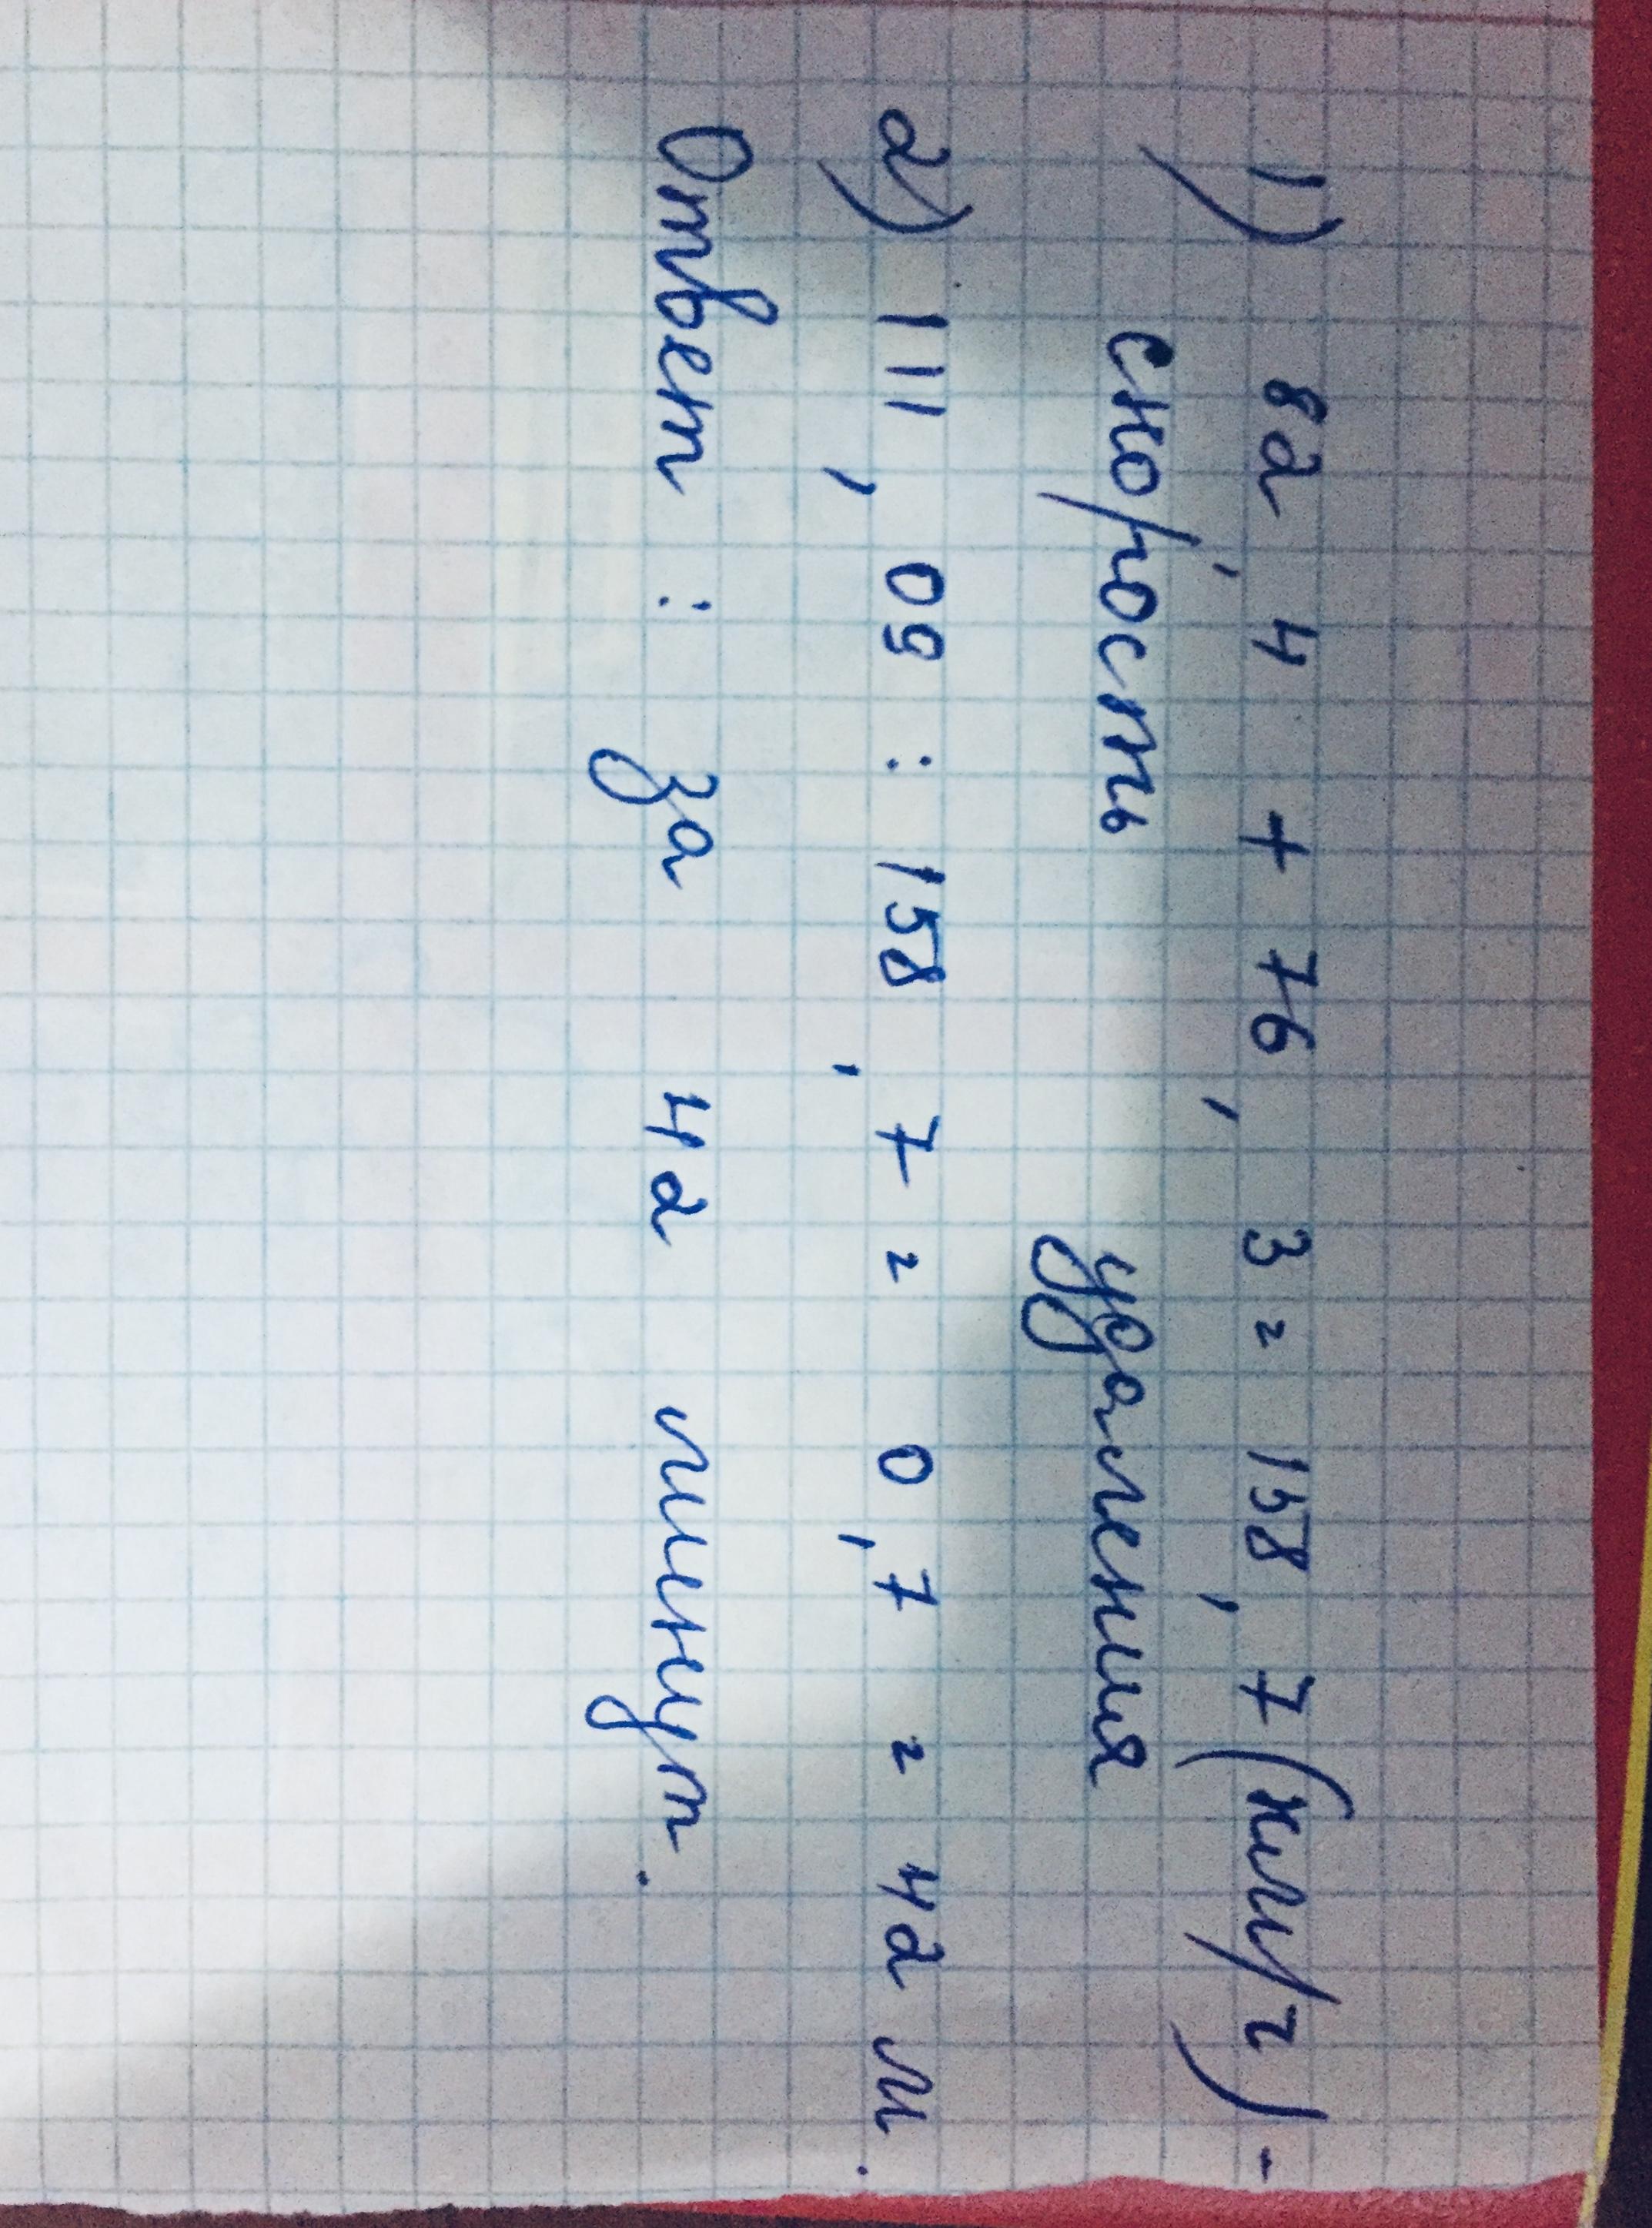 1) 82,4 + 76,3 = 158,7 (км/ч) -
скорость удаления
2) 111,09 : 158,7 = 0,7 = 42 м.
Ответ : за 42 минут.